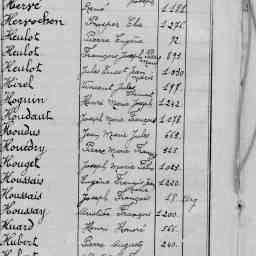 Hervé René Joseph 1.181.
Hervochon Prosper Elie 1.271.
Heulot Pierre Eugène 72.
Heulot François Joseph Pierre Marie 893.
Heulot Jules Ernest Jean Marie 1.030.
Hirel Vincent Jules
Hoguin Henri Marie Joseph 1.242.
Houdaut Joseph Marie François 1.078.
Houdus Jean Marie Jules 669.
Houédry Pierre Marie François 923.
Houget Joseph Marie 1.029.
Houssais Eugène François 1.220.
Houssais Joseph François 18.
Houssay François 1.200.
Huard Henri Honoré 565.
Hubert Pierre Auguste 240.